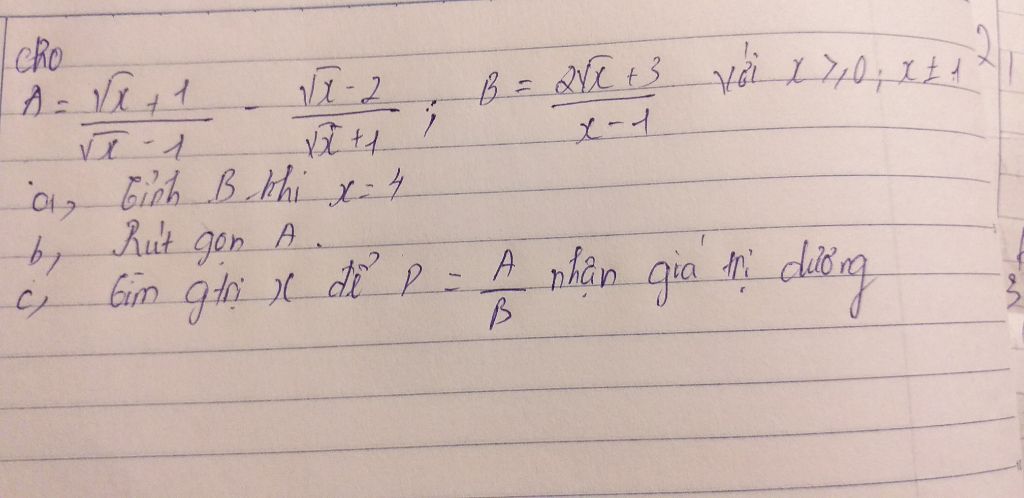 cho
A = \frac{\sqrt{x} + 1}{\sqrt{x} - 1} - \frac{\sqrt{x} - 2}{\sqrt{x} + 1} ; B = \frac{2\sqrt{x} + 3}{x - 1} với x ⩾ 0 ; x ± 1
a, Tính B khi x = 4
b, Rút gọn A.
c, Tìm gtrị x để P = \frac{A}{B} nhận giá trị dương